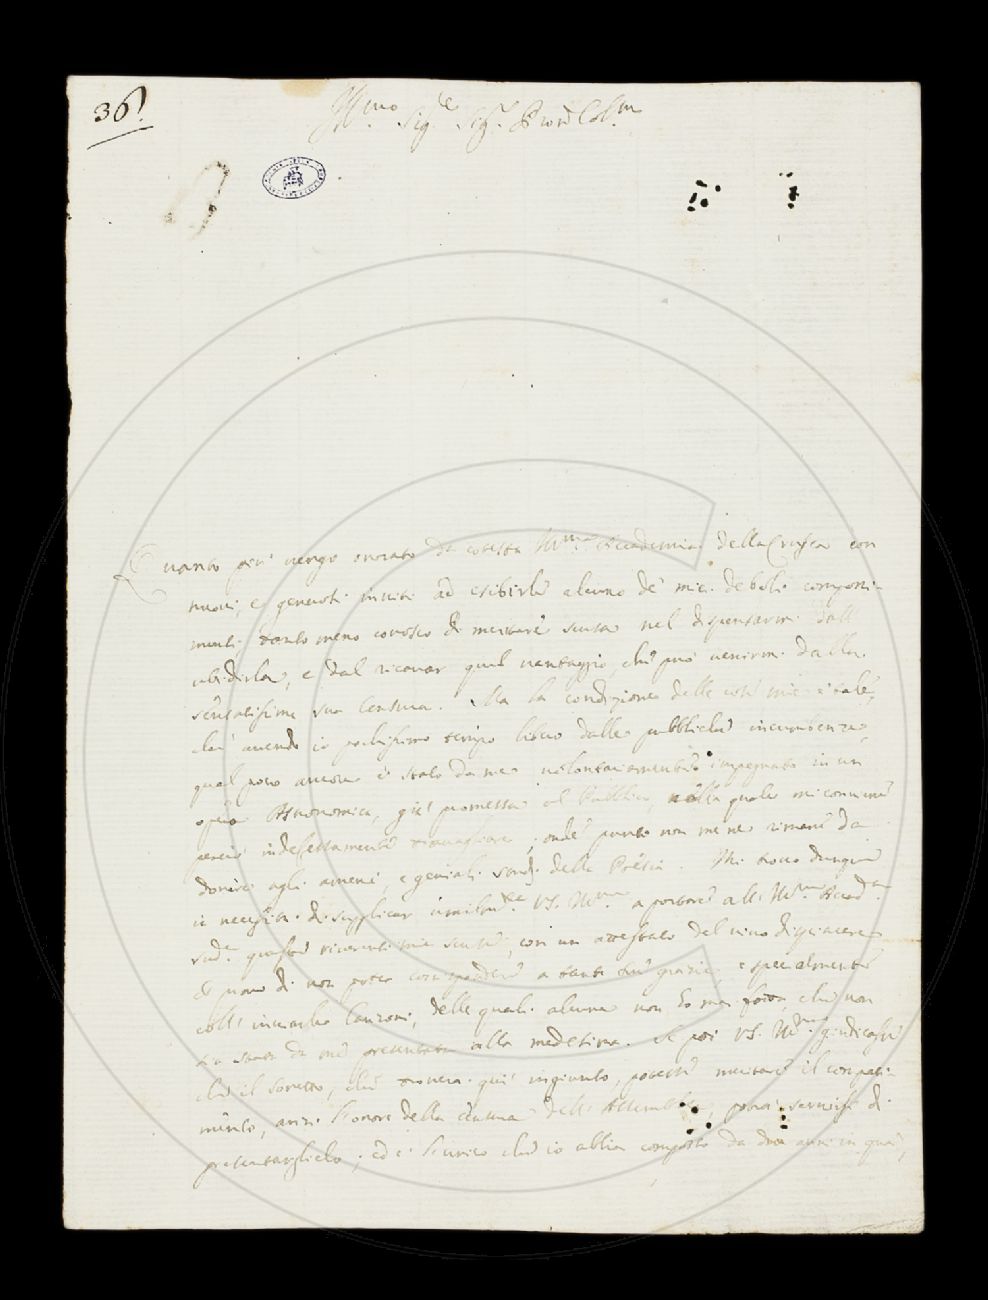 36
Ill.mo Sig.re Sig.r Pron Col.mo
Quanto più vengo onorato da cotesta Ill.ma Accademia della Crusca con
nuovi, e generosi inviti ad esibirle alcuno de' miei deboli componi-
menti, tanto meno conosco di meritare scusa nel dispensarmi dall'
ubidirla, e dal ricavar quel vantaggio, che può venirmi dalla
sensatissima sua Censura. Ma la condizione delle cose mie è tale,
che avendo io pochissimo tempo libero dalle pubbliche incumbenze,
qual poco ancora è stato da me volontariamente impegnato in un
opera Astronomica, già promessa al Pubblico, nella quale mi conviene
perciò indefessamente travagliare; onde punto non me ne rimane da
donare agli ameni, e geniali studj della Poesia. Mi trovo dunque
in necessità di supplicar umilm.te VS. Ill.ma a portare all' Ill.ma Accad.a
sud.a queste riverentissime scuse, con un attestato del vivo dispiacere,
che provo di non poter corrispondere a tante sue grazie, e specialmente
coll' inviarle Canzoni, delle quali alcuna non ho mai fatta, che non
sia stata da me presentata alla medesima. Se poi VS. Ill.ma giudicasse
che il Sonetto, che troverà qui ingiunto, potesse meritare il compati-
mento, anzi l'onore della censura dell' Assemblea, potrà servirsi di
presentarglielo; ed è l'unico che io abbia composto da due anni in quà,